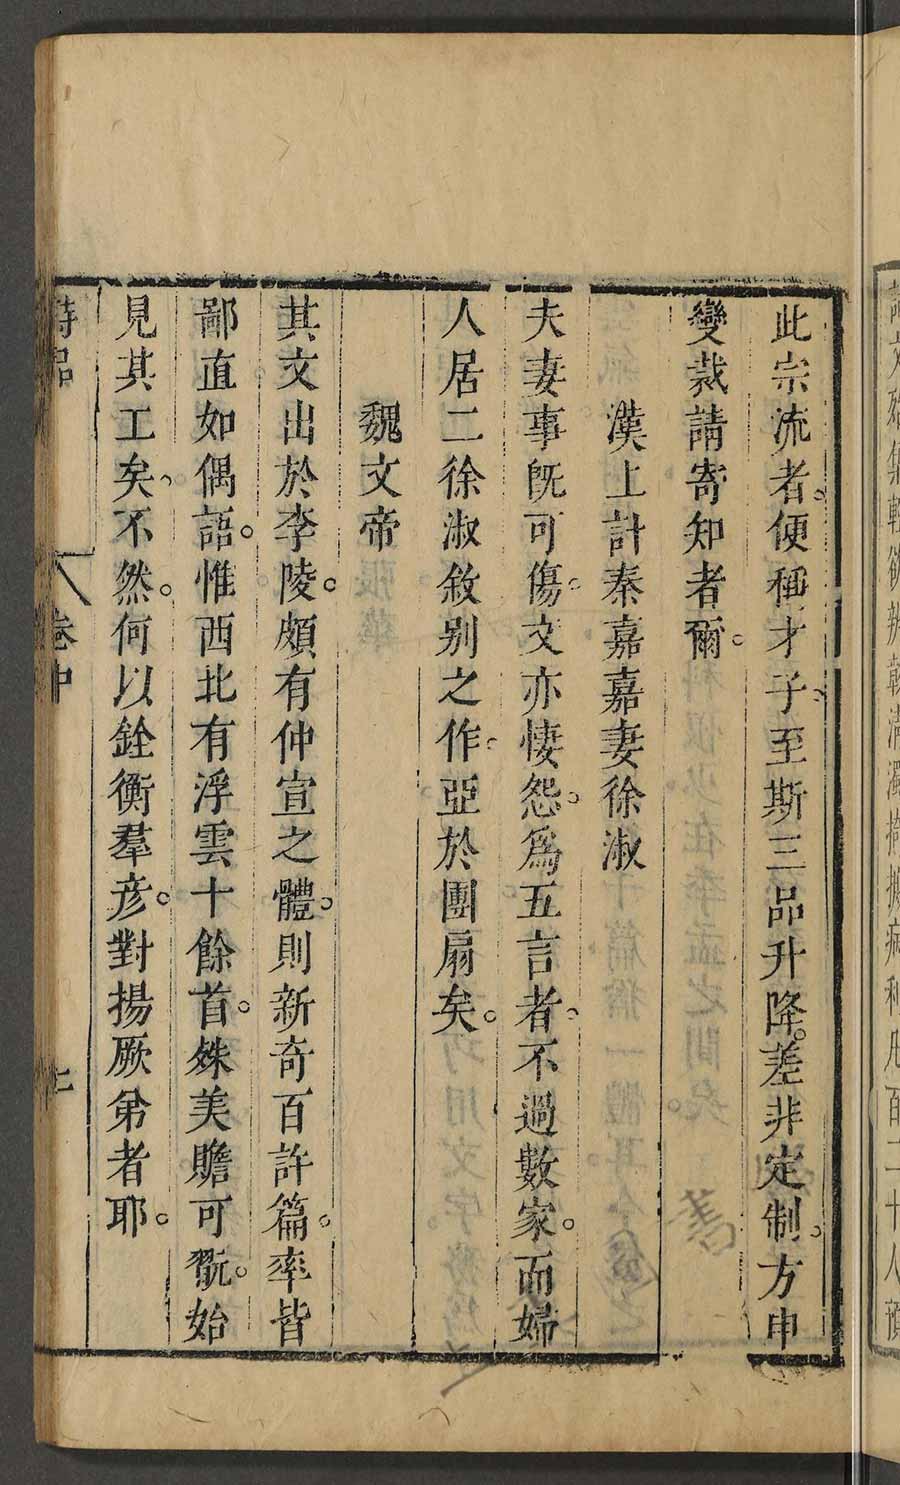 此宗流者。便稱才子。至斯三品升降。差非定制。方申
變裁請寄知者爾。
漢上計秦嘉嘉妻徐淑
夫妻事旣可傷。文亦悽怨。爲五言者。不過數家。而婦
人居二徐淑敘别之作。亞於團扇矣。
魏文帝
其文出於李陵。頗有仲宣之體。則新奇百許篇。率皆
鄙直如偶語。惟西北有浮雲十餘首。殊美贍可翫。始
見其工矣。不然。何以銓衡羣彦。對揚厥弟者耶。
詩品 卷中